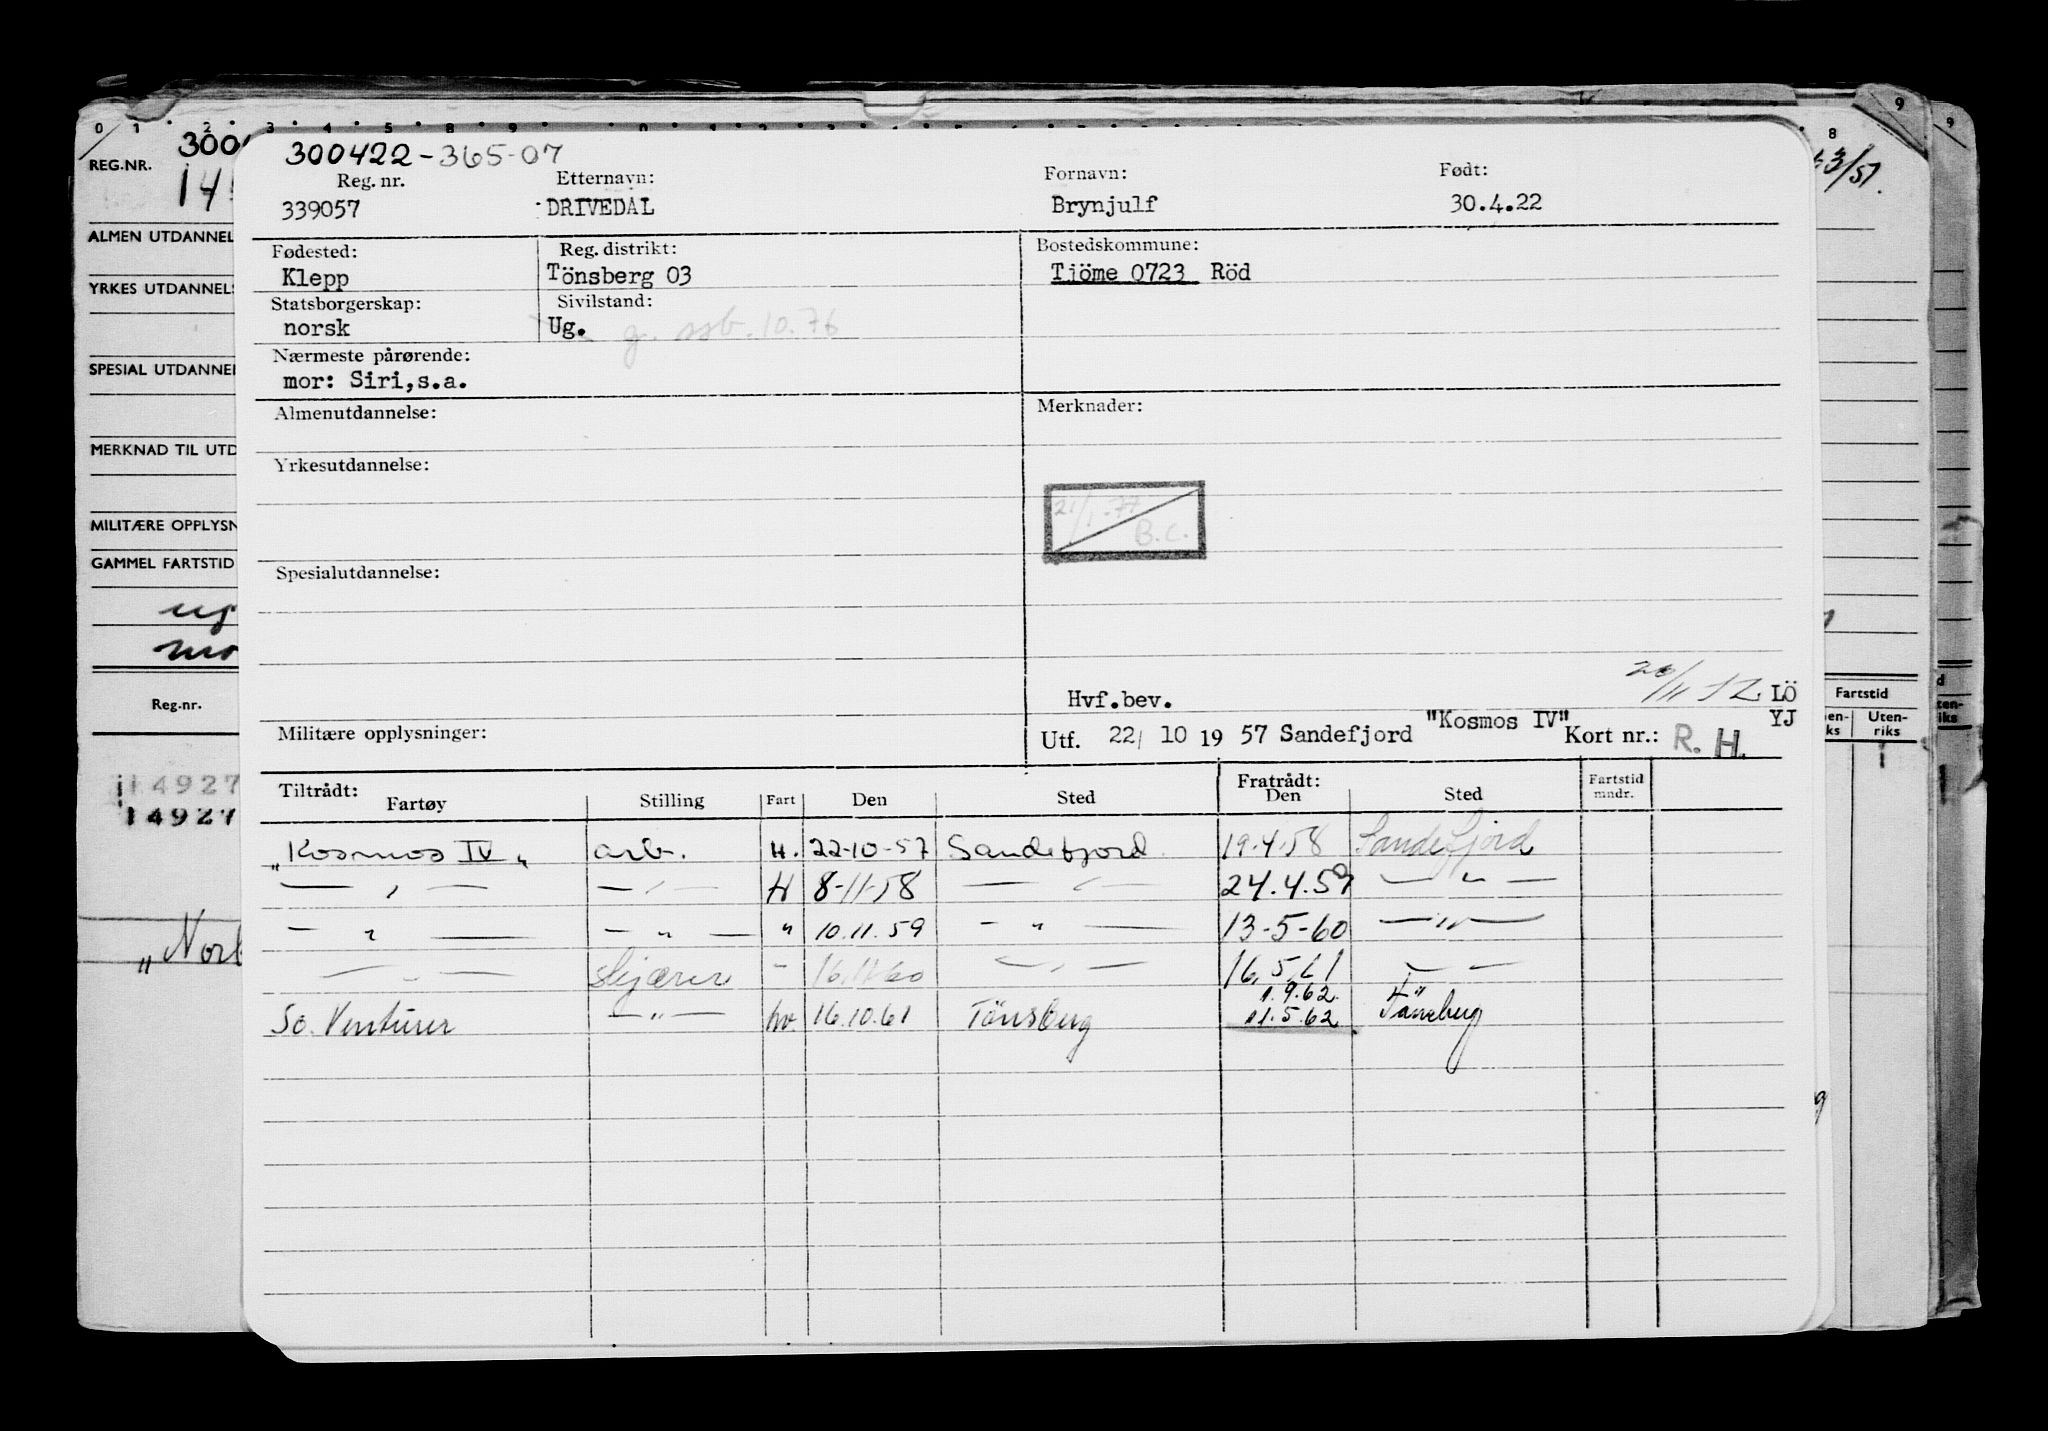 300422-365-07
Reg. nr. Etternavn: Fornavn: Født:
339057 DRIVEDAL Brynjulf 30.4.22
Fødested: Reg. distrikt: Bostedskommune:
Klepp Tönsberg 03 Tjöme 0723 Röd
Statsborgerskap: Sivilstand:
norsk Ug. g. ssb. 10.76
Nærmeste pårørende:
mor: Siri,s.a.
Almenutdannelse: Merknader:
Yrkesutdannelse:
21/1-77 B.C.
Spesialutdannelse:
Hvf.bev. LÖ
Militære opplysninger: Utf. 22/ 10 19 57 Sandefjord "Kosmos IV" Kort nr.: R. H. YJ
Tiltrådt: Fratrådt: Fartstid
Fartøy Stilling Fart Den Sted Den Sted mndr.
"Kosmos IV" arb. H. 22-10-57 Sandefjord 19.4.58 Sandefjord
— " — — " — H 8-11-58 — " — 24.4.59 — " —
— " — — " — " 10.11.59 — " — 13-5-60 — " —
— " — skjærer - 16.11.60 — " — 16.5.61 — " —
1.9.62.
So. Venturer — " — hv 16.10.61 Tönsberg 11.5.62 Tönsberg
0 1 2 3 4 5 8 9
REG.NR.
ALMEN UTDANNEL
YRKES UTDANNELS
SPESIAL UTDANNEL
MERKNAD TIL UTD
MILITÆRE OPPLYSN
GAMMEL FARTSTID
ug
mo
Reg.nr.
14927
14927
"Nor
8 9
3/51.
Fartstid
Uten-
riks
9